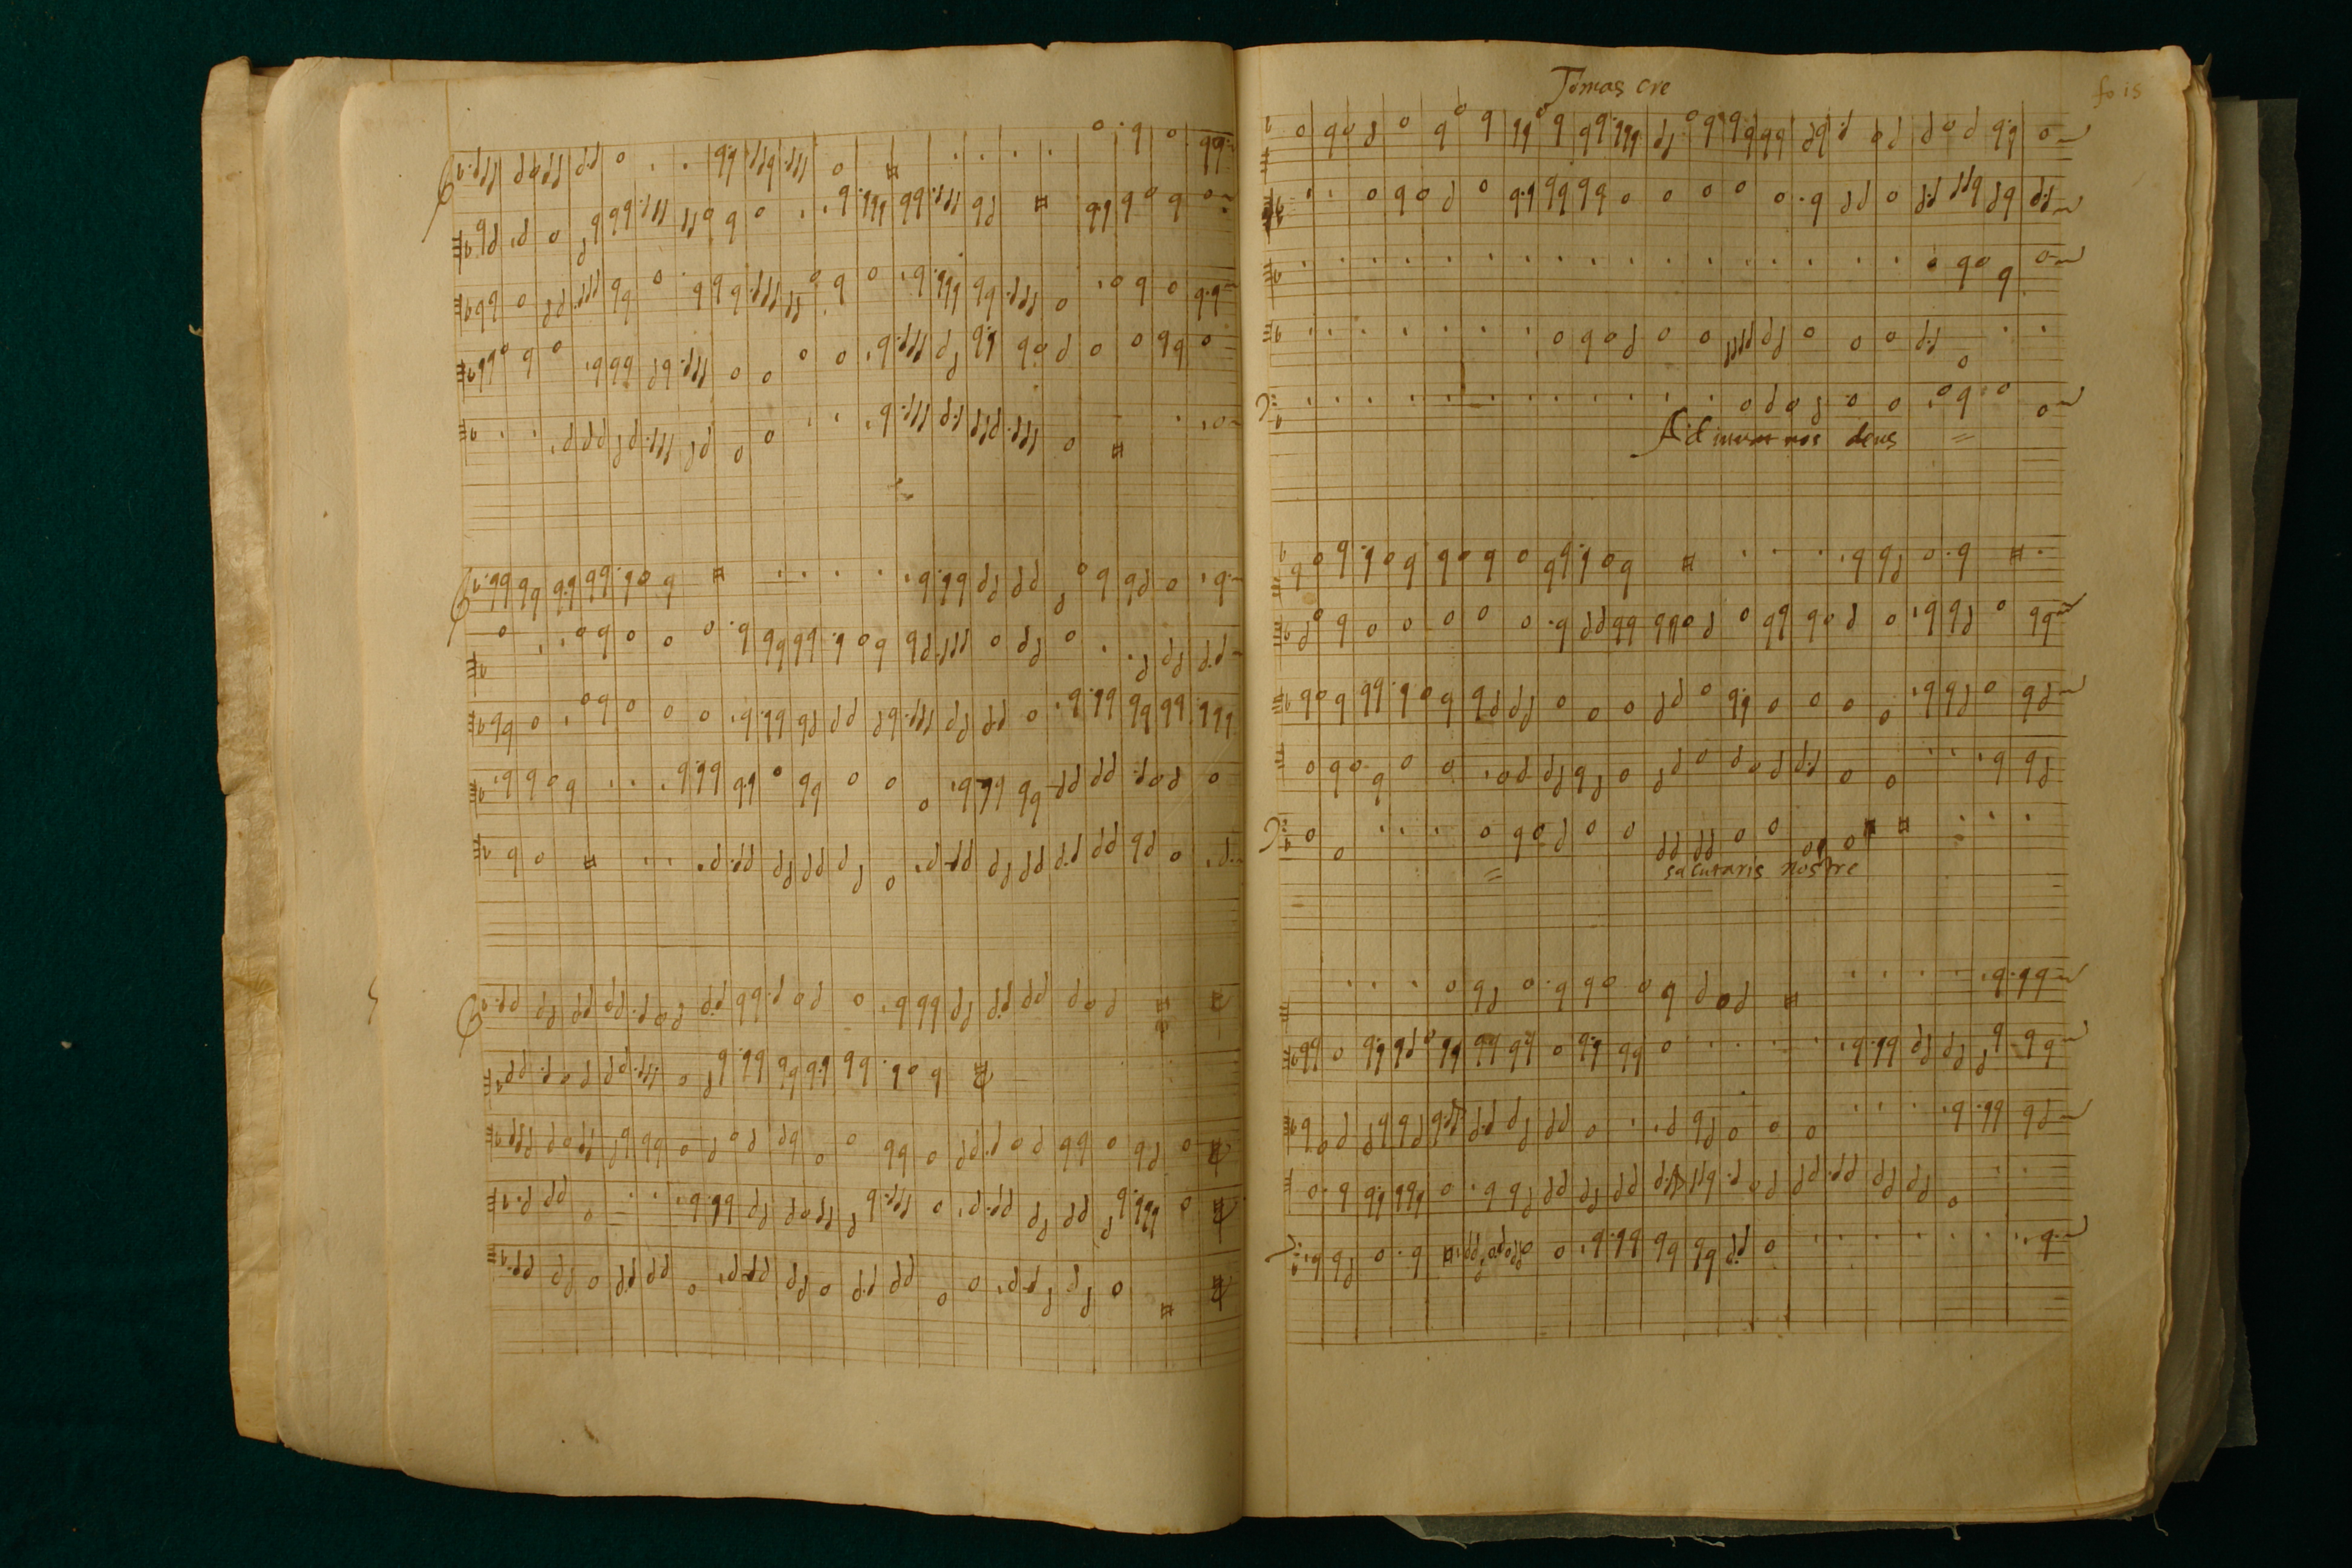 Tomas cre
fo 15
Adiuva nos deus
salutaris nostre